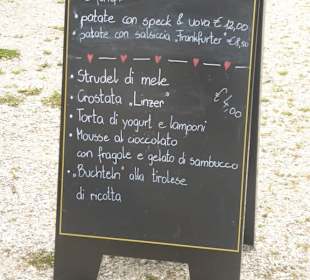 • patate con speck & uova € 12,00
• patate con salsiccia „Frankfurter"
• Strudel di mele
• Crostata „Linzer"
€ 4,00
• Torta di yogurt e lamponi
• Mousse al cioccolato
con fragole e gelato di sambucco
• „Buchteln" alla tirolese
di ricotta